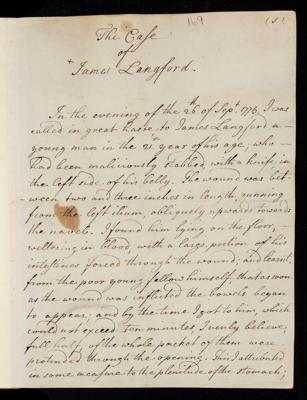 169 (5)
The Case
of
+
James Langford.
In the evening of the 26th of Sept. 1776, I was
called in great haste to James Langford a
young man in the 21st year of his age; who
had been maliciously stabbed with a knife in
the left side, of his belly. The wound was bet-
ween two and three inches in length, running
from the left ileum, obliquely upwards towards
the navel. I found him lying on the floor,
weltering in blood with a large portion of his
intestines forced through the wound; and learnt,
from the poor young fellow himself, that as soon
as the wound was inflicted the bowels began
to appear; and by the time I got to him, which
could not exceed Ten minutes, I verily believe,
full half, of the whole packet of them were
protruded through the opening. This I attributed
in some measure to the plenitude of the stomach;